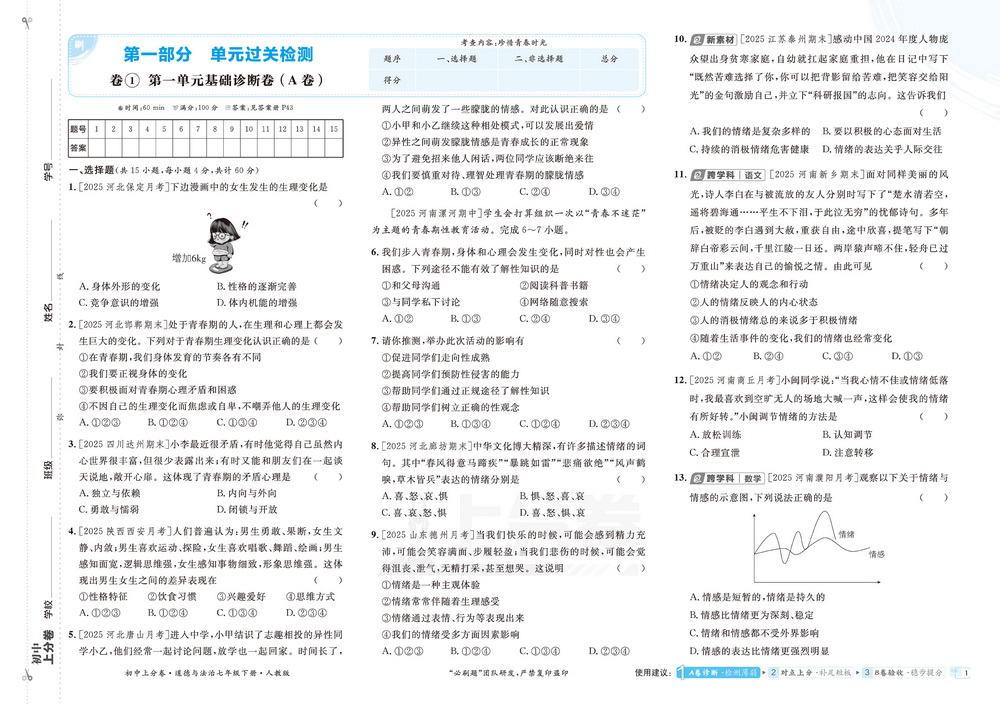 刷
第一部分 单元过关检测
卷① 第一单元基础诊断卷(A卷)
考查内容:珍惜青春时光
题序 一、选择题 二、非选择题 总分
得分
时间:60 min 满分:100 分 答案:见答案册 P43
题号 1 2 3 4 5 6 7 8 9 10 11 12 13 14 15
答案
一、选择题(共 15 小题,每小题 4 分,共计 60 分)
1. [2025 河北保定月考]下边漫画中的女生发生的生理变化是
( )
增加6kg
A. 身体外形的变化 B. 性格的逐渐完善
C. 竞争意识的增强 D. 体内机能的增强
2. [2025 河北邯郸期末]处于青春期的人,在生理和心理上都会发
生巨大的变化。下列对于青春期生理变化认识正确的是( )
①在青春期,我们身体发育的节奏各有不同
②我们要正视身体的变化
③要积极面对青春期心理矛盾和困惑
④不因自己的生理变化而焦虑或自卑,不嘲弄他人的生理变化
A. ①②③ B. ①②④ C. ①③④ D. ②③④
3. [2025 四川达州期末]小李最近很矛盾,有时他觉得自己虽然内
心世界很丰富,但很少表露出来;有时又能和朋友们在一起谈
天说地,敞开心扉。这体现了青春期的矛盾心理是 ( )
A. 独立与依赖 B. 内向与外向
C. 勇敢与懦弱 D. 闭锁与开放
4. [2025 陕西西安月考]人们普遍认为:男生勇敢、果断,女生文
静、内敛;男生喜欢运动、探险,女生喜欢唱歌、舞蹈、绘画;男生
感知面宽,逻辑思维强,女生感知事物细致,形象思维强。这体
现出男生女生之间的差异表现在 ( )
①性格特征 ②饮食习惯 ③兴趣爱好 ④思维方式
A. ①②③ B. ①②④ C. ①③④ D. ②③④
5. [2025 河北唐山月考]进入中学,小甲结识了志趣相投的异性同
学小乙,他们经常一起讨论问题,放学也一起回家。时间长了,
两人之间萌发了一些朦胧的情感。对此认识正确的是 ( )
①小甲和小乙继续这种相处模式,可以发展出爱情
②异性之间萌发朦胧情感是青春成长的正常现象
③为了避免招来他人闲话,两位同学应该断绝来往
④我们要慎重对待、理智处理青春期的朦胧情感
A. ①② B. ①③ C. ②④ D. ③④
[2025 河南漯河期中]学生会打算组织一次以“青春不迷茫”
为主题的青春期性教育活动。完成 6～7 小题。
6. 我们步入青春期,身体和心理会发生变化,同时对性也会产生
困惑。下列途径不能有效了解性知识的是 ( )
①和父母沟通 ②阅读科普书籍
③与同学私下讨论 ④网络随意搜索
A. ①② B. ①③ C. ②④ D. ③④
7. 请你推测,举办此次活动的影响有 ( )
①促进同学们走向性成熟
②提高同学们预防性侵害的能力
③帮助同学们通过正规途径了解性知识
④帮助同学们树立正确的性观念
A. ①②③ B. ①③④ C. ①②④ D. ②③④
8. [2025 河北廊坊期末]中华文化博大精深,有许多描述情绪的词
句。其中“春风得意马蹄疾”“暴跳如雷”“悲痛欲绝”“风声鹤
唳,草木皆兵”表达的情绪分别是 ( )
A. 喜、怒、哀、惧 B. 惧、怒、喜、哀
C. 喜、哀、怒、惧 D. 喜、怒、惧、哀
9. [2025 山东德州月考]当我们快乐的时候,可能会感到精力充
沛,可能会笑容满面、步履轻盈;当我们悲伤的时候,可能会觉
得沮丧、泄气,无精打采,甚至想哭。这说明 ( )
①情绪是一种主观体验
②情绪常常伴随着生理感受
③情绪通过表情、行为等表现出来
④我们的情绪受多方面因素影响
A. ①②③ B. ①②④ C. ①③④ D. ②③④
10. 新素材 [2025 江苏泰州期末]感动中国 2024 年度人物庞
众望出身贫寒家庭,自幼就扛起家庭重担,他在日记中写下
“既然苦难选择了你,你可以把背影留给苦难,把笑容交给阳
光”的金句激励自己,并立下“科研报国”的志向。这告诉我们
( )
A. 我们的情绪是复杂多样的 B. 要以积极的心态面对生活
C. 持续的消极情绪危害健康 D. 情绪的表达关乎人际交往
11. 跨学科 语文 [2025 河南新乡期末]面对同样美丽的风
光,诗人李白在与被流放的友人分别时写下了“楚水清若空,
遥将碧海通……平生不下泪,于此泣无穷”的忧郁诗句。多年
后,被贬的李白遇到大赦,重获自由,途中欣喜,提笔写下“朝
辞白帝彩云间,千里江陵一日还。两岸猿声啼不住,轻舟已过
万重山”来表达自己的愉悦之情。由此可见 ( )
①情绪决定人的观念和行动
②人的情绪反映人的内心状态
③人的消极情绪总的来说多于积极情绪
④随着生活事件的变化,我们的情绪也经常变化
A. ①② B. ②④ C. ③④ D. ①③
12. [2025 河南商丘月考]小闽同学说:“当我心情不佳或情绪低落
时,我最喜欢到空旷无人的场地大喊一声,这样会使我的情绪
有所好转。”小闽调节情绪的方法是 ( )
A. 放松训练 B. 认知调节
C. 合理宣泄 D. 注意转移
13. 跨学科 数学 [2025 河南濮阳月考]观察以下关于情绪与
情感的示意图,下列说法正确的是 ( )
情绪
情感
A. 情感是短暂的,情绪是持久的
B. 情感比情绪更为深刻、稳定
C. 情绪和情感都不受外界影响
D. 情感的表达比情绪更强烈明显
学号
姓名
班级
学校
线
封
弥
初中
上分卷
上分卷
初中上分卷·道德与法治七年级下册·人教版
“必刷题”团队研发,严禁复盗印
使用建议: 1 A卷诊断·检测薄弱 2 对点上分·补足短板 3 B卷验收·稳步提分
1